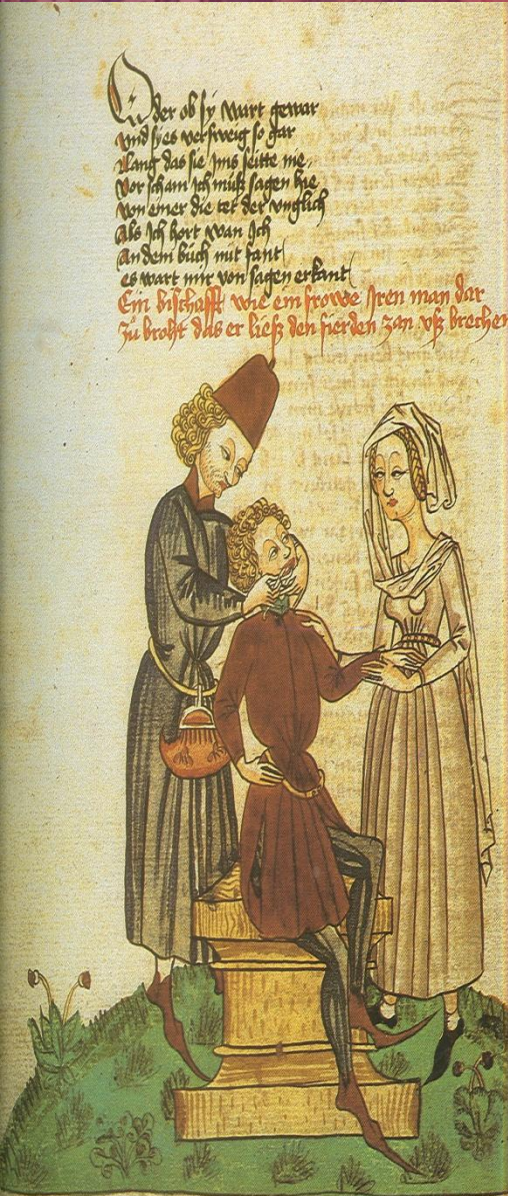 Oder ob sy wart gewar
vnd sy es versweig so gar
Lang das sie jms seitte nie
Vor scham ich muß sagen hie
von einer die tet der vnglich
Als Ich hort wan Ich
An dem buch mit fant
es wart mir von sagen erkant
Ein bischafft wie ein frowe Iren man dar
zů broht das er ließ den fierden zan vsz brechen